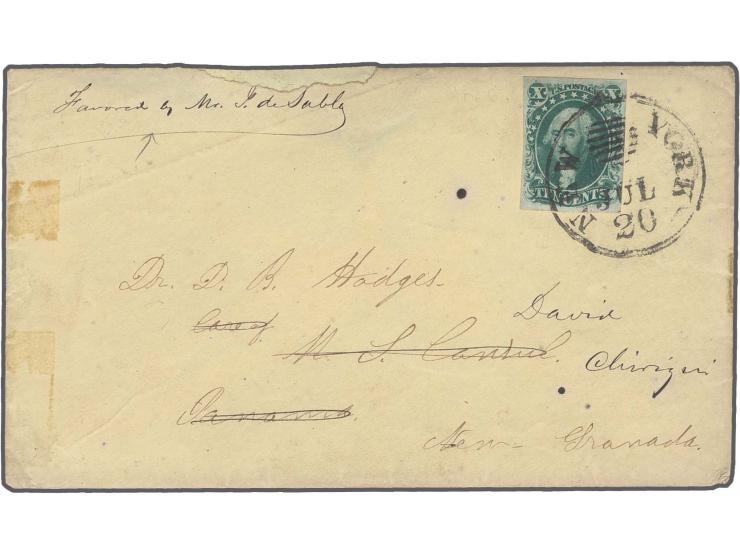 Favored by Mr. J. de Sabla
X U.S. POSTAGE X
TEN CENTS
NEW YORK
JUL
20
Dr. D. B. Hodges
David
Care of
U. S. Consul. Chiriqui
Panama.
New Granada.